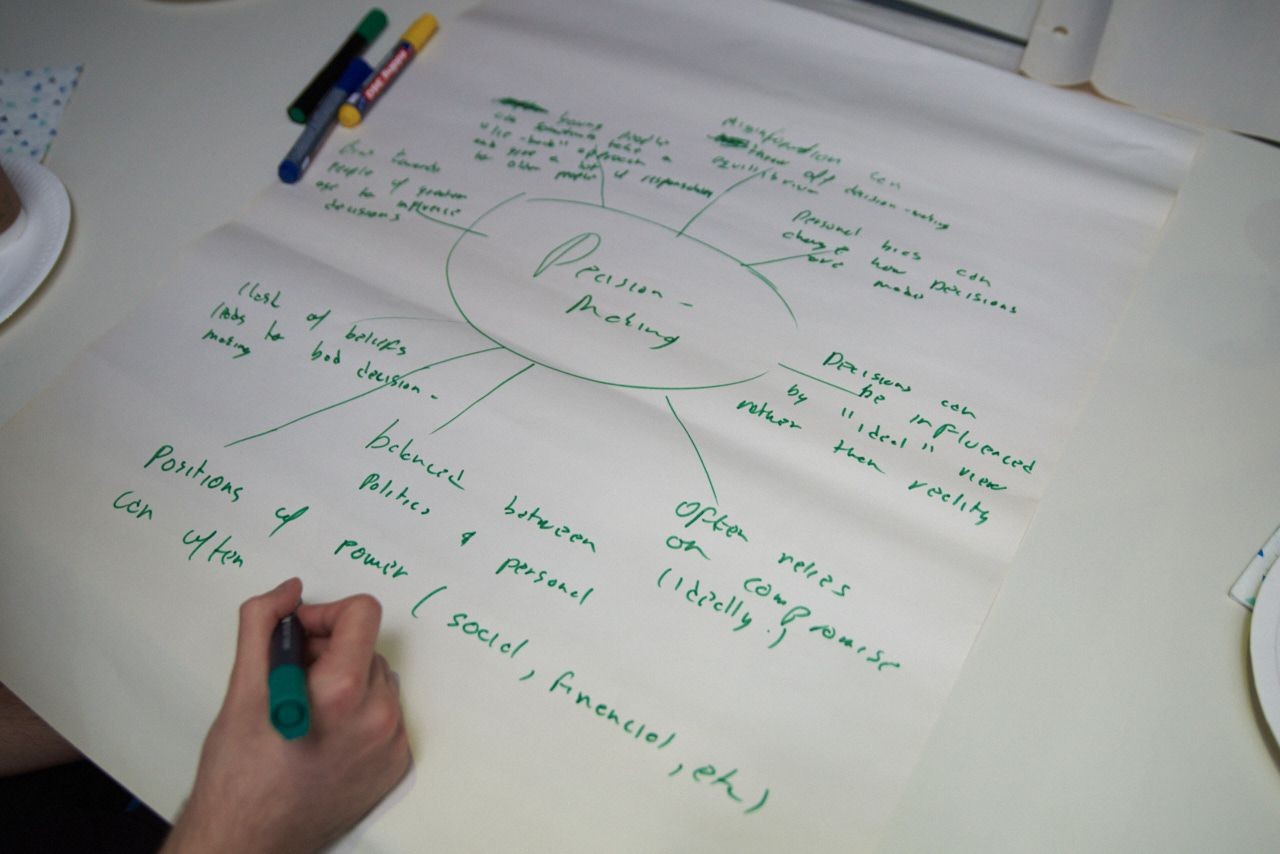 Decision-
Making
young people
can sometimes take a
"lice-back" approach
and give a lot of responsibility
to older people
Misinformation can
throw off decision-making
equilibrium
Personal bias can
change how Decisions
are made
Decisions can
be influenced
by "ideal" view
rather than reality
Often relies
on compromise
(ideally!)
balanced between
Politics & personal
Positions of power (social, financial, etc)
can often
Clash of beliefs
leads to bad decision-
making
towards
people of greater
age to influence
decisions